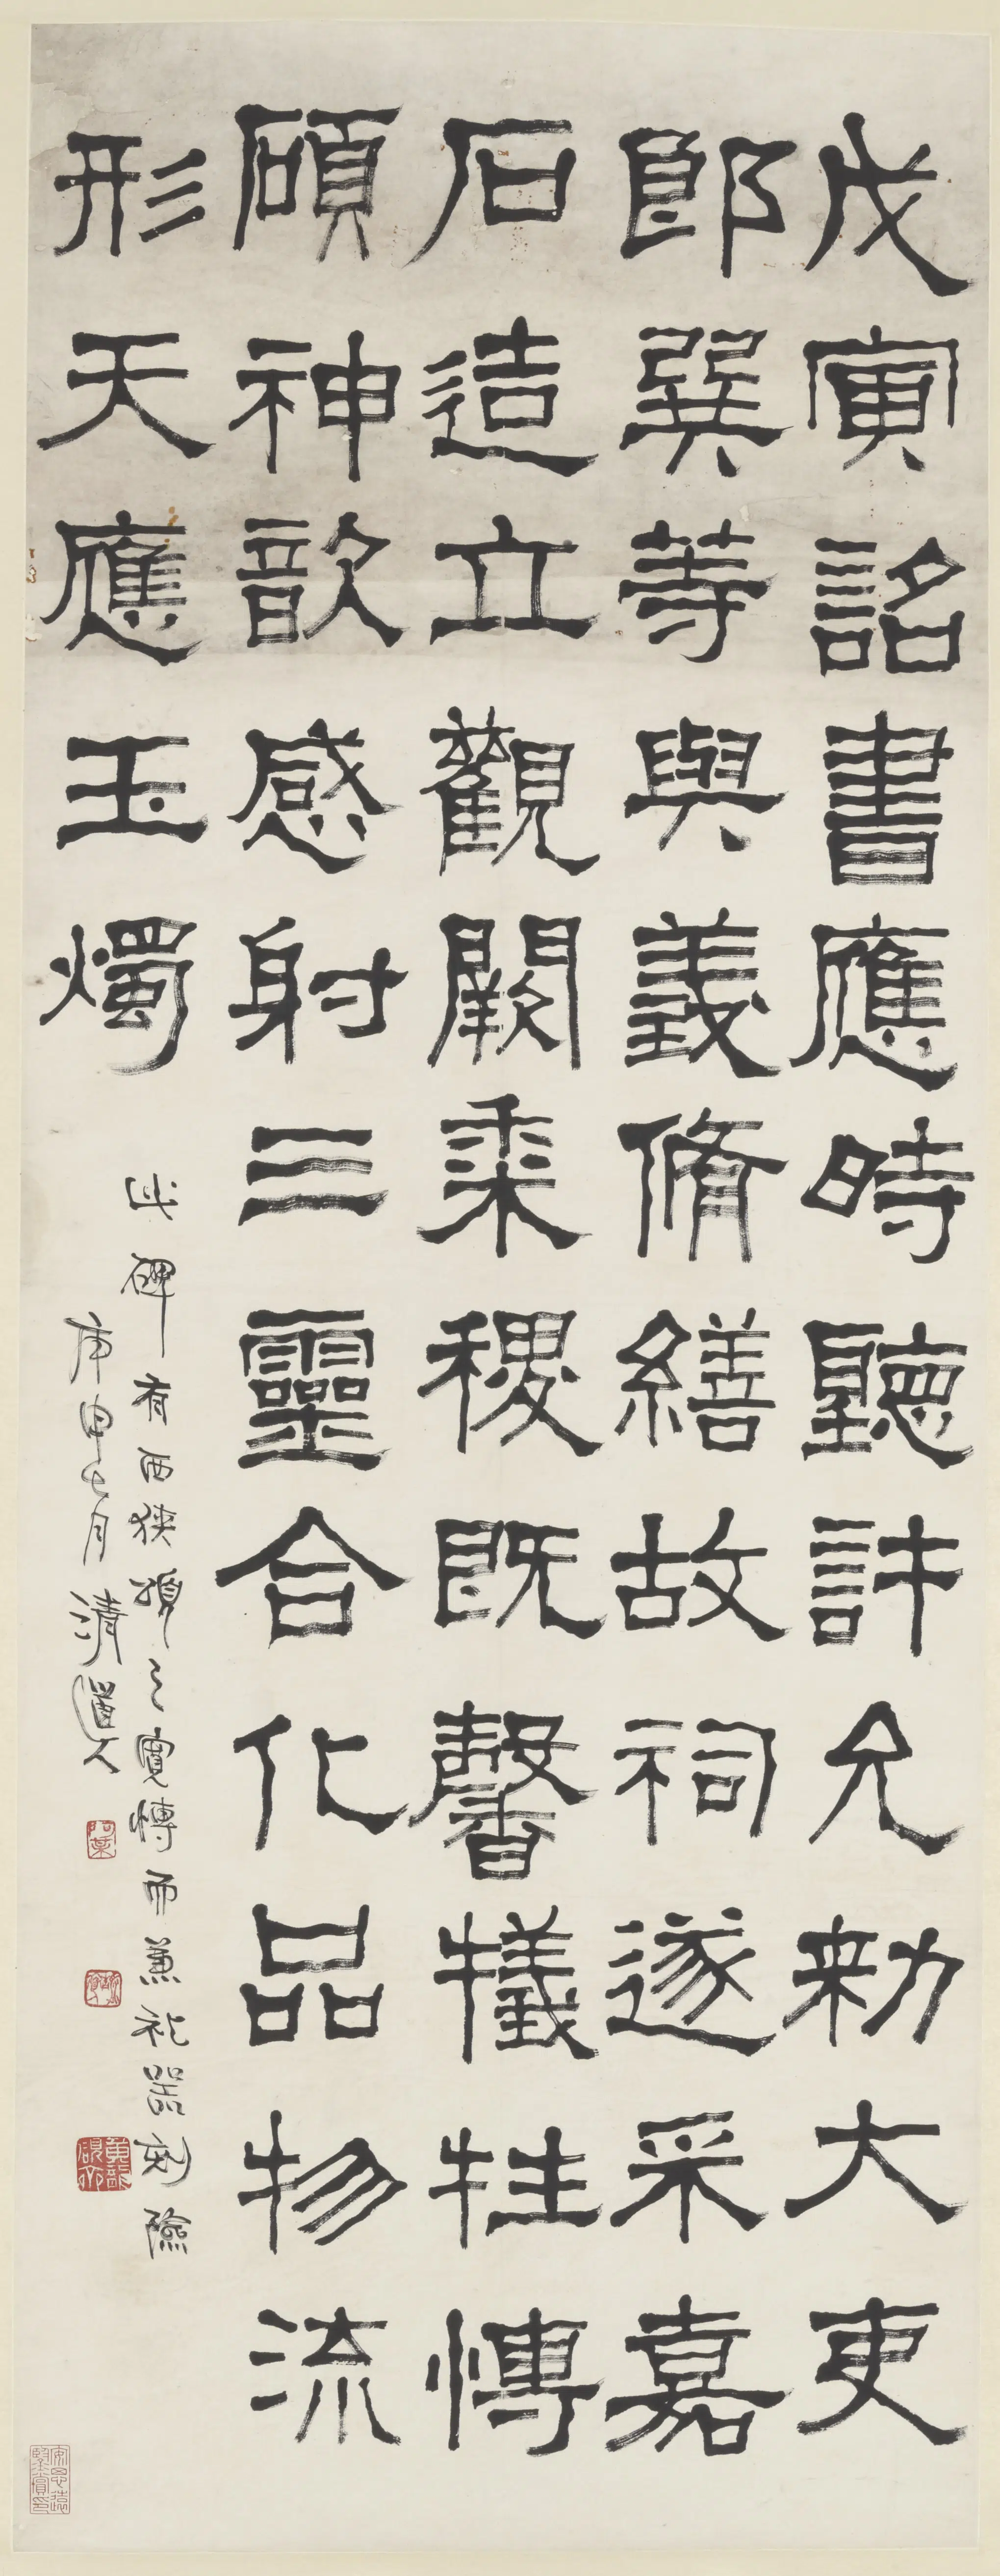 戊寅詔書應時聽許允勑大吏
郎巽等與義脩繕故祠遂采嘉
石造立觀闕黍稷既馨犧牲博
碩神歆感射三靈合化品物流
形天應玉燭
此碑有西狹頌之寬博而兼礼器刻險
庚申七月清道人
安思遠